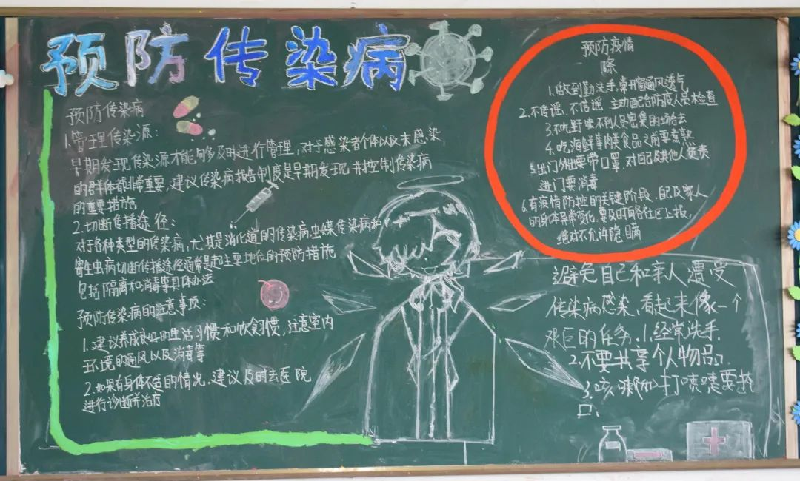 预防传染病
预防传染病
1.管理传染源:
早期发现传染源才能够及时进行管理,对于感染者个体以及未感染
的群体很重要,建议传染病报告制度是早期发现并控制传染病
的重要措施
2.切断传播途径:
对于各种类型的传染病,尤其是消化道的传染病虫媒传染病和
寄生虫病切断传播途径通常是起主要地位的预防措施
包括隔离和消毒具体办法
预防传染病的注意事项:
1.建议养成良好的生活习惯和饮食惯,注意室内
环境的通风以及消毒等
2.如果有身体不适的情况,建议及时去医院
进行诊断并治疗
预防疫情
1.做到勤洗手,常开窗通风透气
2.不信谣,不传谣,主动配合防疫人员检查
3.不吃野味不到人员密集的场合去
4.吃海鲜等肉类食品之前要煮熟
5.出门外出要带口罩,对自己及其他人负责
进门要消毒
6.在疫情防控的关键阶段,自己及家人
的身体异常变化,要及时向各社区上报,
绝对不允许隐瞒
避免自己和亲人遭受
传染病感染,看起来像一个
艰巨的任务,1.经常洗手.
2.不要共享个人物品.
3.咳嗽和打喷嚏要捂
口.